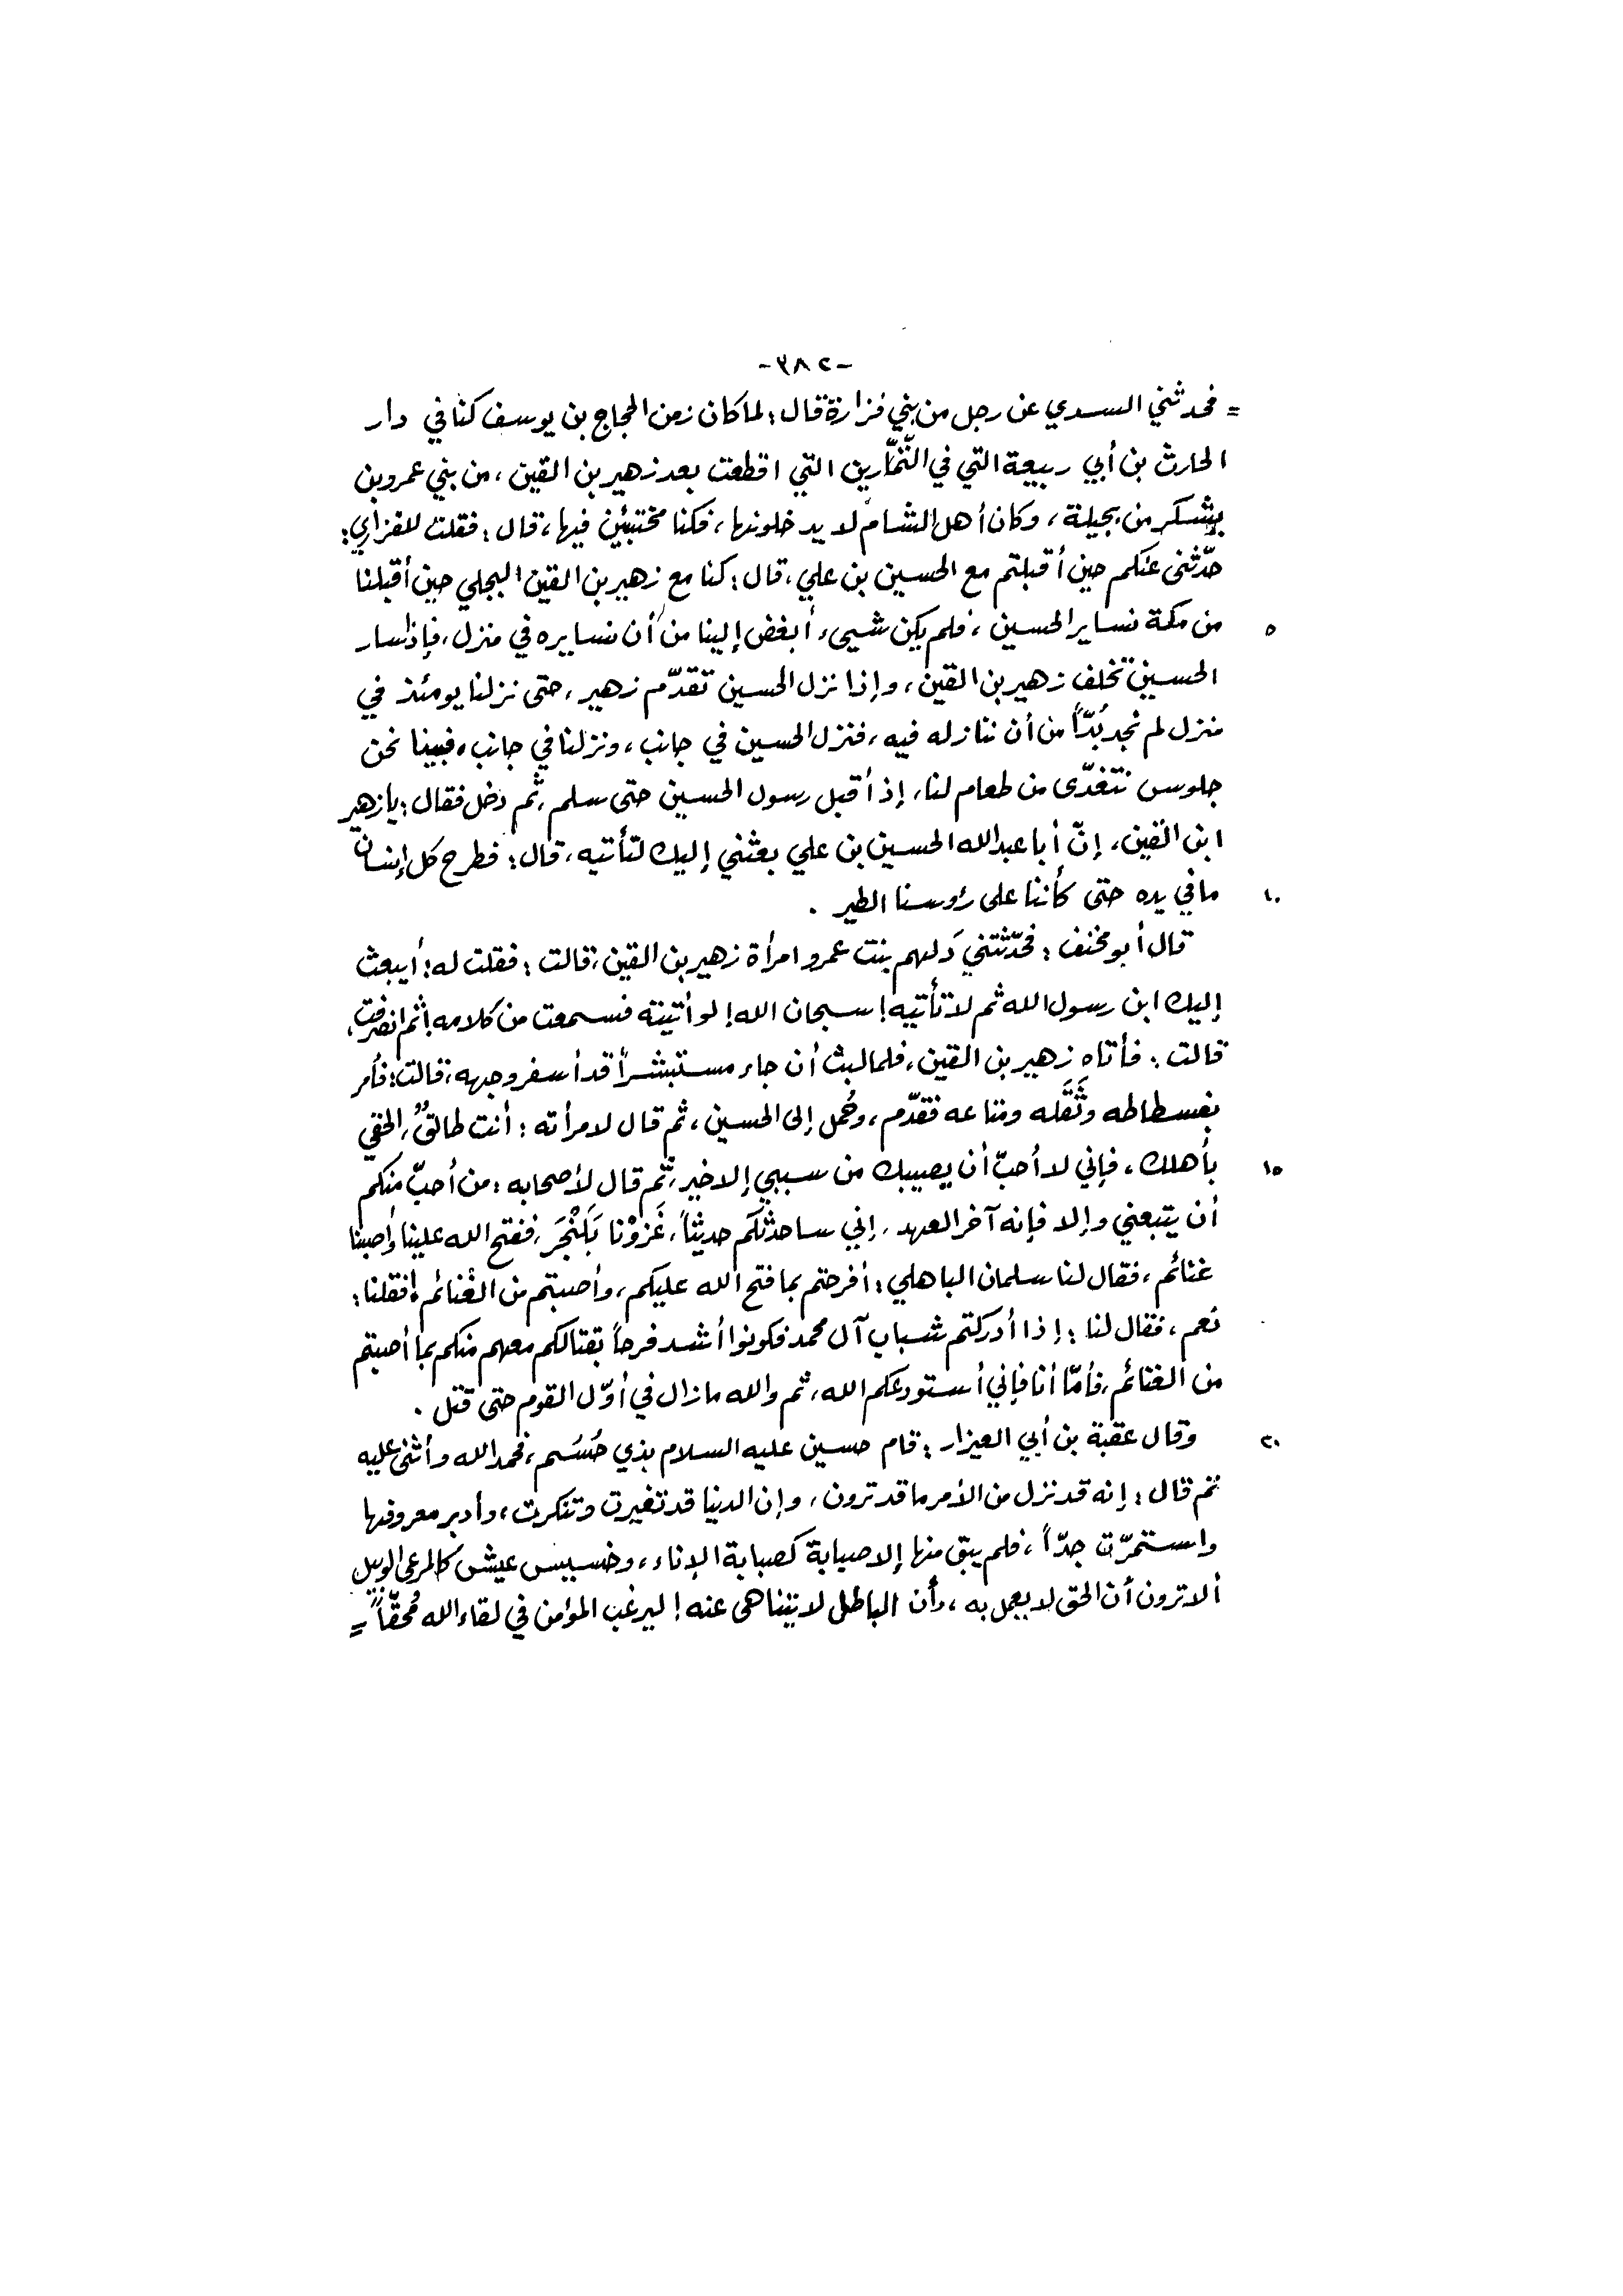 -٣٨٢-
= فحدثني السدي عن رجل من بني فزارة قال: لما كان زمن الحجاج بن يوسف كنا في دار
الحارث بن أبي ربيعة التي في التّمّارين التي اقطعت بعد زهير بن القين، من بني عمرو بن
يشكر من بجيلة، وكان أهل الشام لا يدخلونها، فكنا مختبئين فيها، قال: فقلت للفزاري:
حدّثني عنكم حين أقبلتم مع الحسين بن علي، قال: كنا مع زهير بن القين البجلي حين أقبلنا
٥ من مكة نساير الحسين، فلم يكن شيىء أبغض إلينا من أن نسايره في منزل، فإذا سار
الحسين تخلف زهير بن القين، وإذا نزل الحسين تقدّم زهير، حتى نزلنا يومئذ في
منزل لم نجد بُدّاً من أن ننازله فيه، فنزل الحسين في جانب، ونزلنا في جانب، فبينا نحن
جلوس نتغدّى من طعام لنا، إذ أقبل رسول الحسين حتى سلم، ثم دخل فقال: يا زهير
ابن القين، إنّ أبا عبد الله الحسين بن علي بعثني إليك لتأتيه، قال: فطرح كل إنسان
١٠ ما في يده حتى كأننا على رؤوسنا الطير.
قال أبو مخنف: فحدّثتني دَلهم بنت عمرو امرأة زهير بن القين، قالت: فقلت له: أيبعث
إليك ابن رسول الله ثم لا تأتيه! سبحان الله! لو أتيته فسمعت من كلامه! ثم انصرفت،
قالت: فأتاه زهير بن القين، فلما لبث أن جاء مستبشراً قد أسفر وجهه، قالت: فأمر
بفسطاطه وثَقَله ومتاعه فقدّم، وحُمل إلى الحسين، ثم قال لامرأته: أنت طالقٌ، الحقي
١٥ بأهلك، فإني لا أحبّ أن يصيبك من سببي إلا خير، ثم قال لأصحابه: من أحبّ منكم
أن يتبعني وإلا فإنه آخر العهد، إني ساحدثكم حديثاً، غَزوْنا بَلَنْجَرَ، ففتح الله علينا وأصبنا
غنائم، فقال لنا سلمان الباهلي: أفرحتم بما فتح الله عليكم، وأصبتم من الغنائم! فقلنا:
نعم، فقال لنا: إذا أدركتم شباب آل محمد فكونوا أشد فرحاً بقتالكم معهم منكم بما أصبتم
من الغنائم، فأمّا أنا فإني أستودعكم الله، ثم والله ما زال في أوّل القوم حتى قتل.
٢٠ وقال عقبة بن أبي العيزار: قام حسين عليه السلام بذي حُسَم، فحمد الله وأثنى عليه
ثم قال: إنه قد نزل من الأمر ما قد ترون، وإن الدنيا قد تغيرت وتنكرت، وأدبر معروفها
واستمرّت جدّاً، فلم يبق منها إلا صبابة كصبابة الإناء، وخسيس عيش كالمرعى الوبيل
ألا ترون أن الحق لا يعمل به، وأن الباطل لا يتناهى عنه! ليرغب المؤمن في لقاء الله مُحقّاً، =